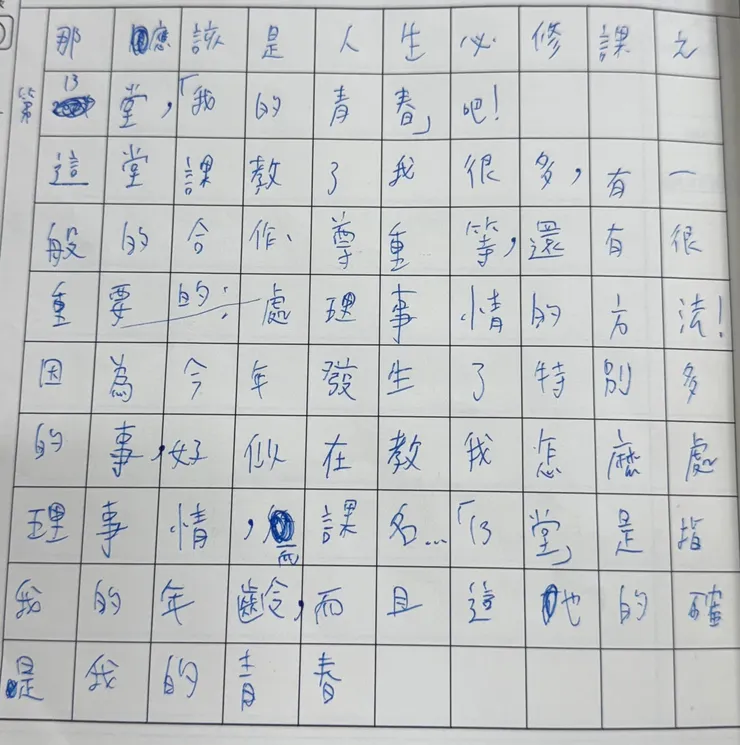 那應該是人生必修課之
第13堂,「我的青春」吧!
這堂課教了我很多,有一
般的合作、尊重等,還有很
重要的:處理事情的方法!
因為今年發生了特別多
的事,好似在教我怎麼處
理事情,而課名…「13堂」是指
我的年齡,而且這也的確
是我的青春